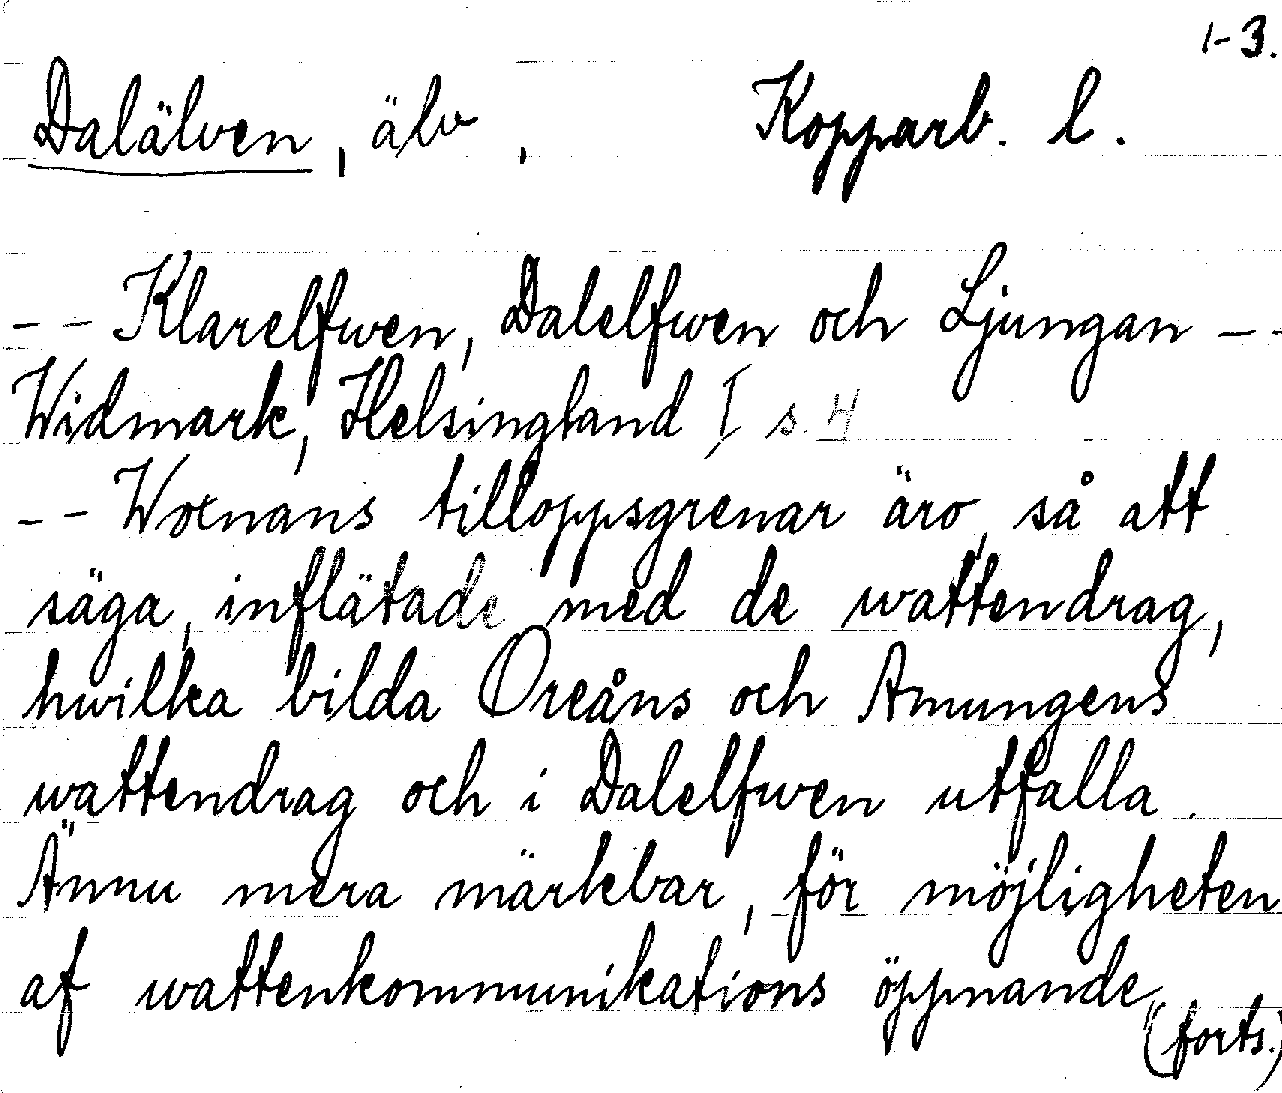 1-3.
Dalälven, älv, Kopparb. l.
-- Klarelfwen, Dalelfwen och Ljungan --
Widmark, Helsingland I s 4
-- Woxnans tilloppsgrenar äro, så att
säga, inflätade med de wattendrag,
hwilka bilda Oreåns och Amungens
wattendrag och i Dalelfwen utfalla.
Ännu mera märkbar, för möjligheten
af wattenkommunikations öppnande,
(forts.)